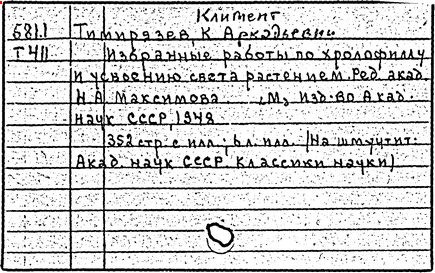 Климент
581.1 Тимирязев, К Аркадьевич
Т411 Избранные работы по хролофиллу
и усвоению света растением. Ред. акад.
Н.А. Максимова. М, Изд-во Акад.
наук СССР, 1948
352 стр. с илл.; 6 л. илл. (На шмуцтит:
Акад. наук СССР. Классики науки)